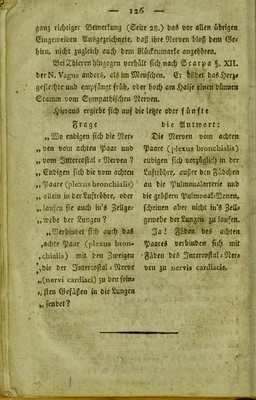 — 126 —
ganz richtiger Bemerkung (Seite 22.) das vor allen übrigen
Eingeweiden Ausgezeichnete, daß ihre Nerven bloß dem Ge-
hirn, nicht zugleich auch dem Rückenmarke angehören.
Bei Thieren hingegen verhält sich nach Scarpa §. XII.
der N. Vagus anders, als im Menschen. Er bildet das Herz-
geflechte und empfängt früh, oder hoch am Halse einen dünnen
Stamm vom Sympathischen Nerven.
Hieraus ergiebt sich auf die letzte oder fünfte
Frage
„Wo endigen sich die Ner-
„ven vom achten Paar und
„vom Intercostal-Nerven?
„Endigen sich die vom achten
„Paare (plexus bronchialis)
„allein in der Luftröhre, oder
„laufen sie auch in's Zellge-
„webe der Lungen?
„Verbindet sich auch das
„achte Paar (plexus bron-
„chialis) mit den Zweigen
„die der Intercostal-Nerve
„(nervi cardiaci) zu den fein-
„sten Gefäßen in die Lungen
„sendet?
die Antwort:
Die Nerven vom achten
Paare (plexus bronchialis)
endigen sich vorzüglich in der
Luftröhre, außer den Fädchen
an die Pulmonalarterie und
die größern Pulmonal-Venen,
scheinen aber nicht in's Zell-
gewebe der Lungen zu laufen.
Ja! Fäden des achten
Paares verbinden sich mit
Fäden des Intercostal-Ner-
ven zu nervis cardiacis.